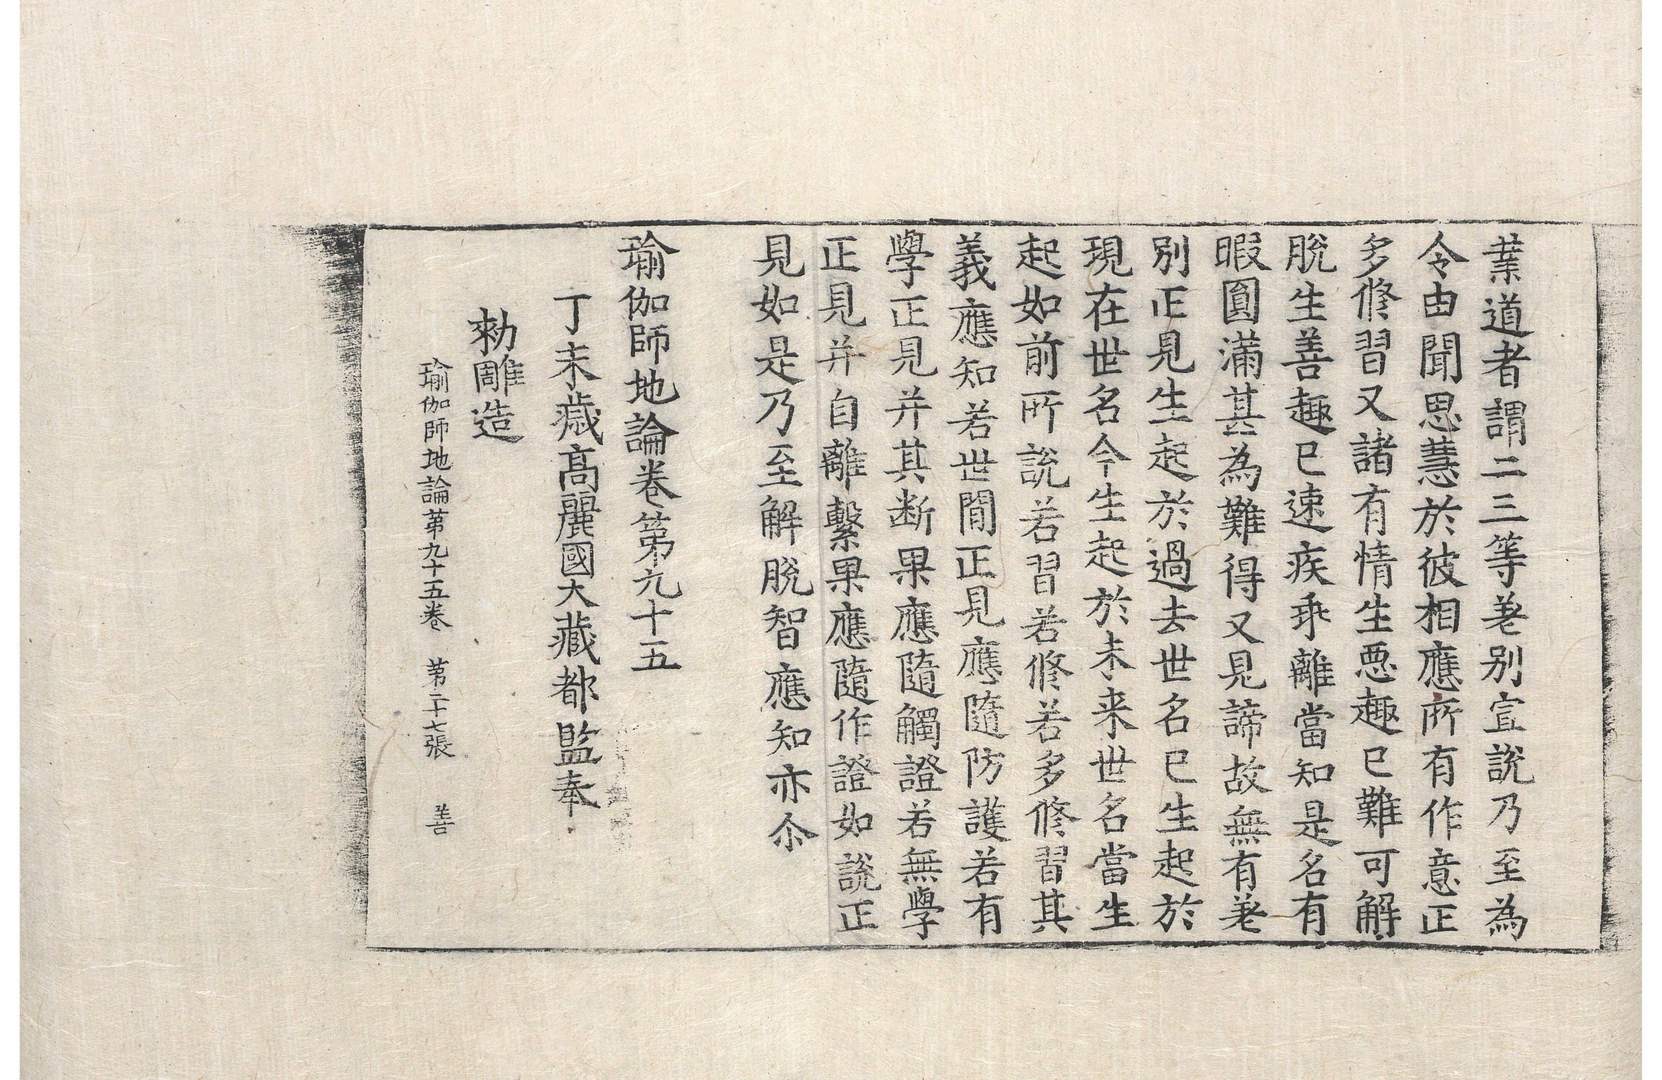 業道者謂二三等差別宣說乃至為
令由聞思慧於彼相應所有作意正
多修習又諸有情生惡趣已難可解
脫生善趣已速疾乖離當知是名有
暇圓滿甚為難得又見諦故無有差
別正見生起於過去世名已生起於
現在世名今生起於未来世名當生
起如前所說若習若修若多修習其
義應知若世閒正見應隨防護若有
學正見并其斷果應隨觸證若無學
正見并自離繫果應隨作證如說正
見如是乃至解脫智應知亦尒
瑜伽師地論卷第九十五
丁未歲高麗國大藏都監奉
勅雕造
瑜伽師地論第九十五卷 第二十七張 善